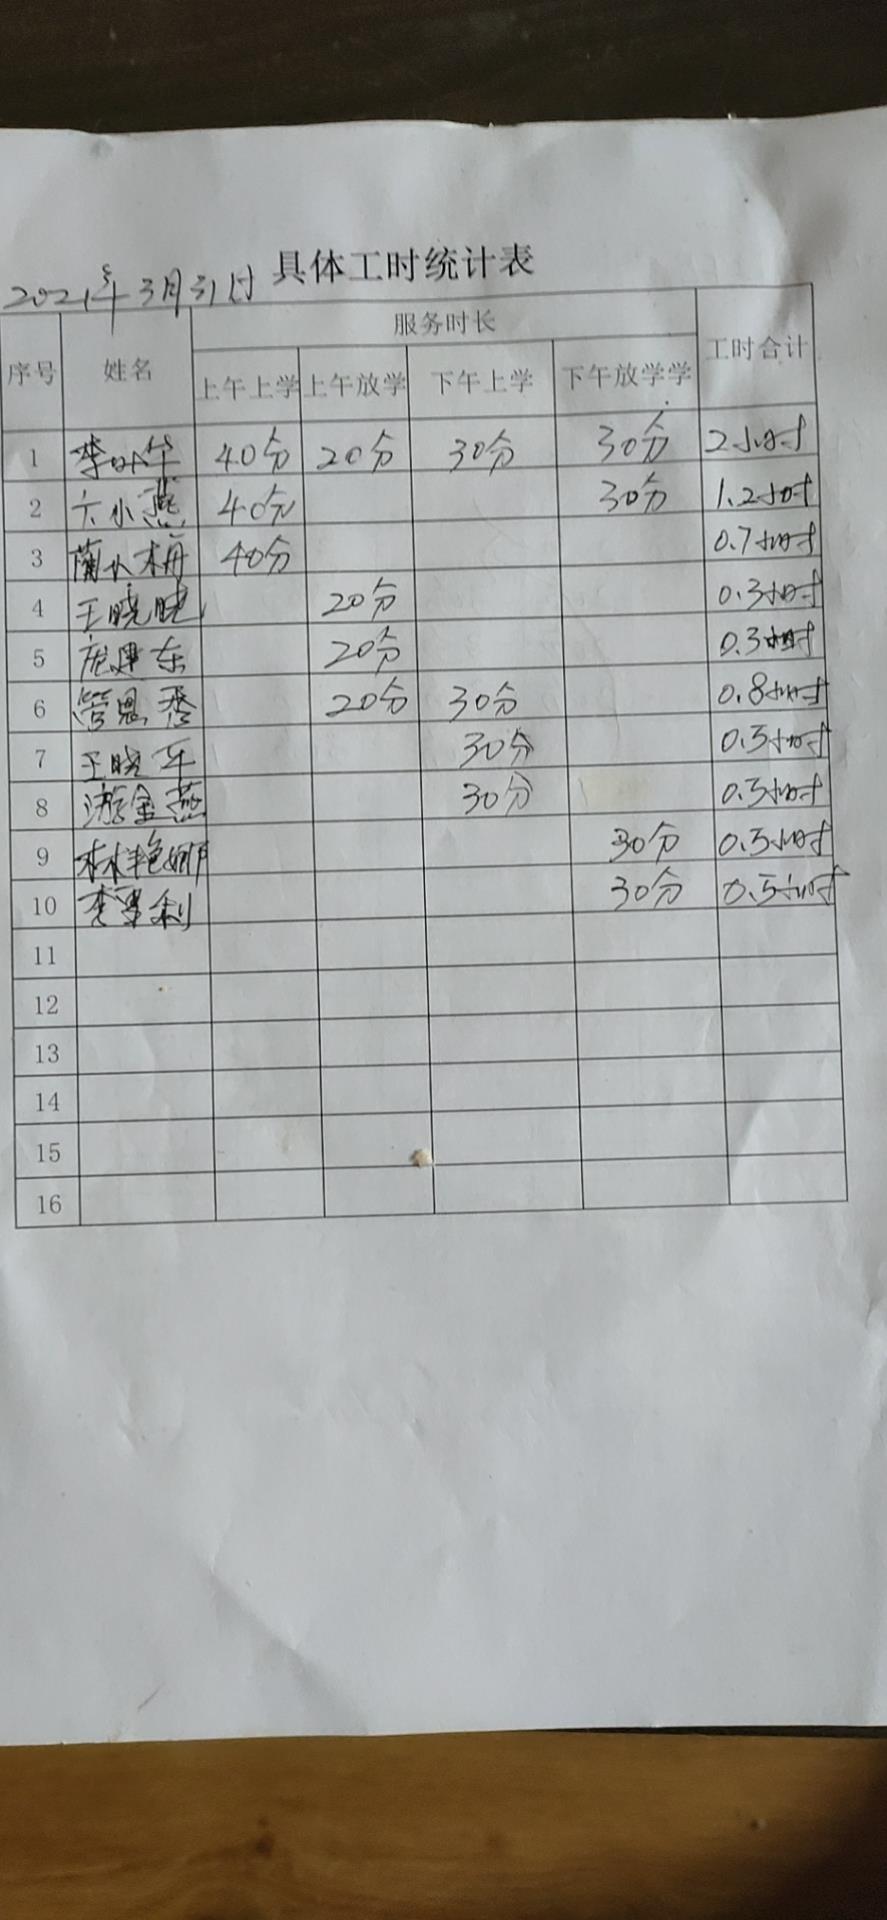 2021年3月31日 具体工时统计表
序号 姓名 服务时长 工时合计
上午上学 上午放学 下午上学 下午放学学
1 李 华 40分 20分 30分 30分 2小时
2 小燕 40分 30分 1.2小时
3 40分 0.7小时
4 王晓晓 20分 0.3小时
5 庞建东 20分 0.3小时
6 管恩秀 20分 30分 0.8小时
7 王晓军 30分 0.5小时
8 游金燕 30分 0.5小时
9 林艳娜 30分 0.5小时
10 李 利 30分 0.5小时
11
12
13
14
15
16